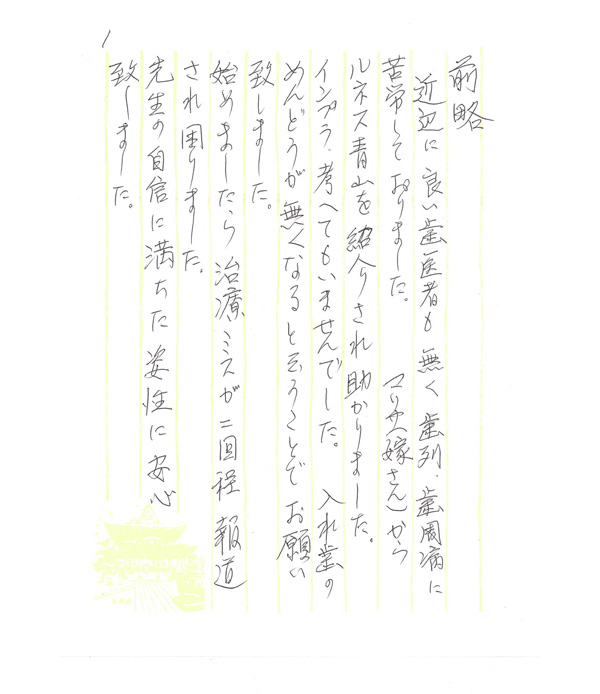 1
前略
近辺に良い歯医者も無く歯列、歯周病に
苦労しておりました。 マリ(嫁さん)から
ルネス青山を紹介され助かりました。
インプラ、考へてもいませんでした。 入れ歯の
めんどうが無くなると云うことでお願い
致しました。
始めましたら治療ミスが二回程報道
され困りました。
先生の自信に満ちた姿性に安心
致しました。